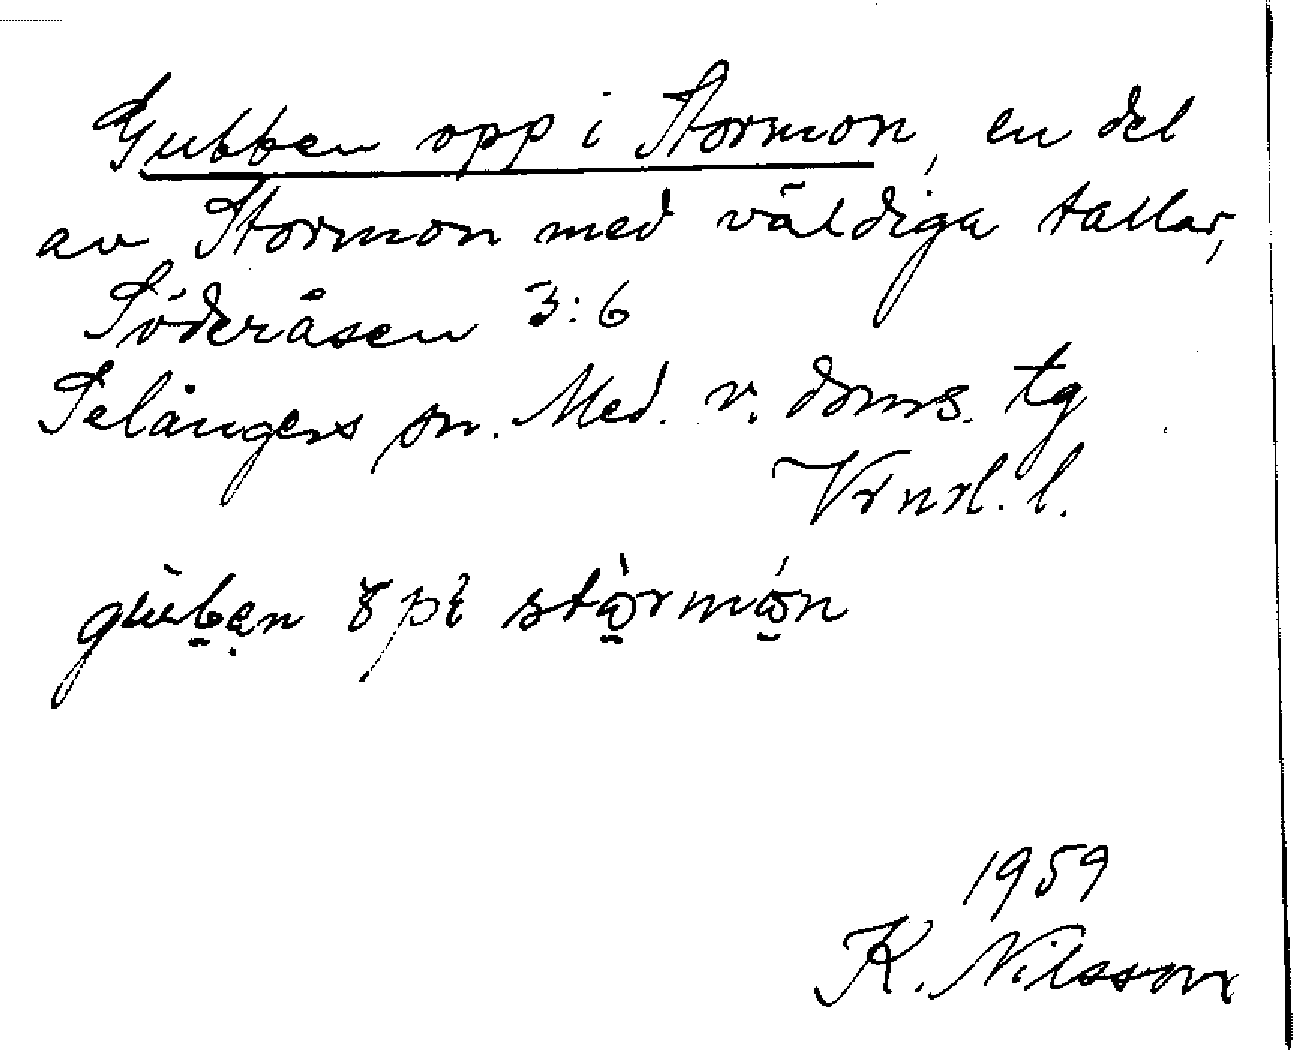 Gubben opp i Stormon, en del
av Stormon med väldiga tallar,
Söderåsen 3:6
Selångers sn. Med. v. doms. tg
Vrnrl. l.
1959
K. Nilsson